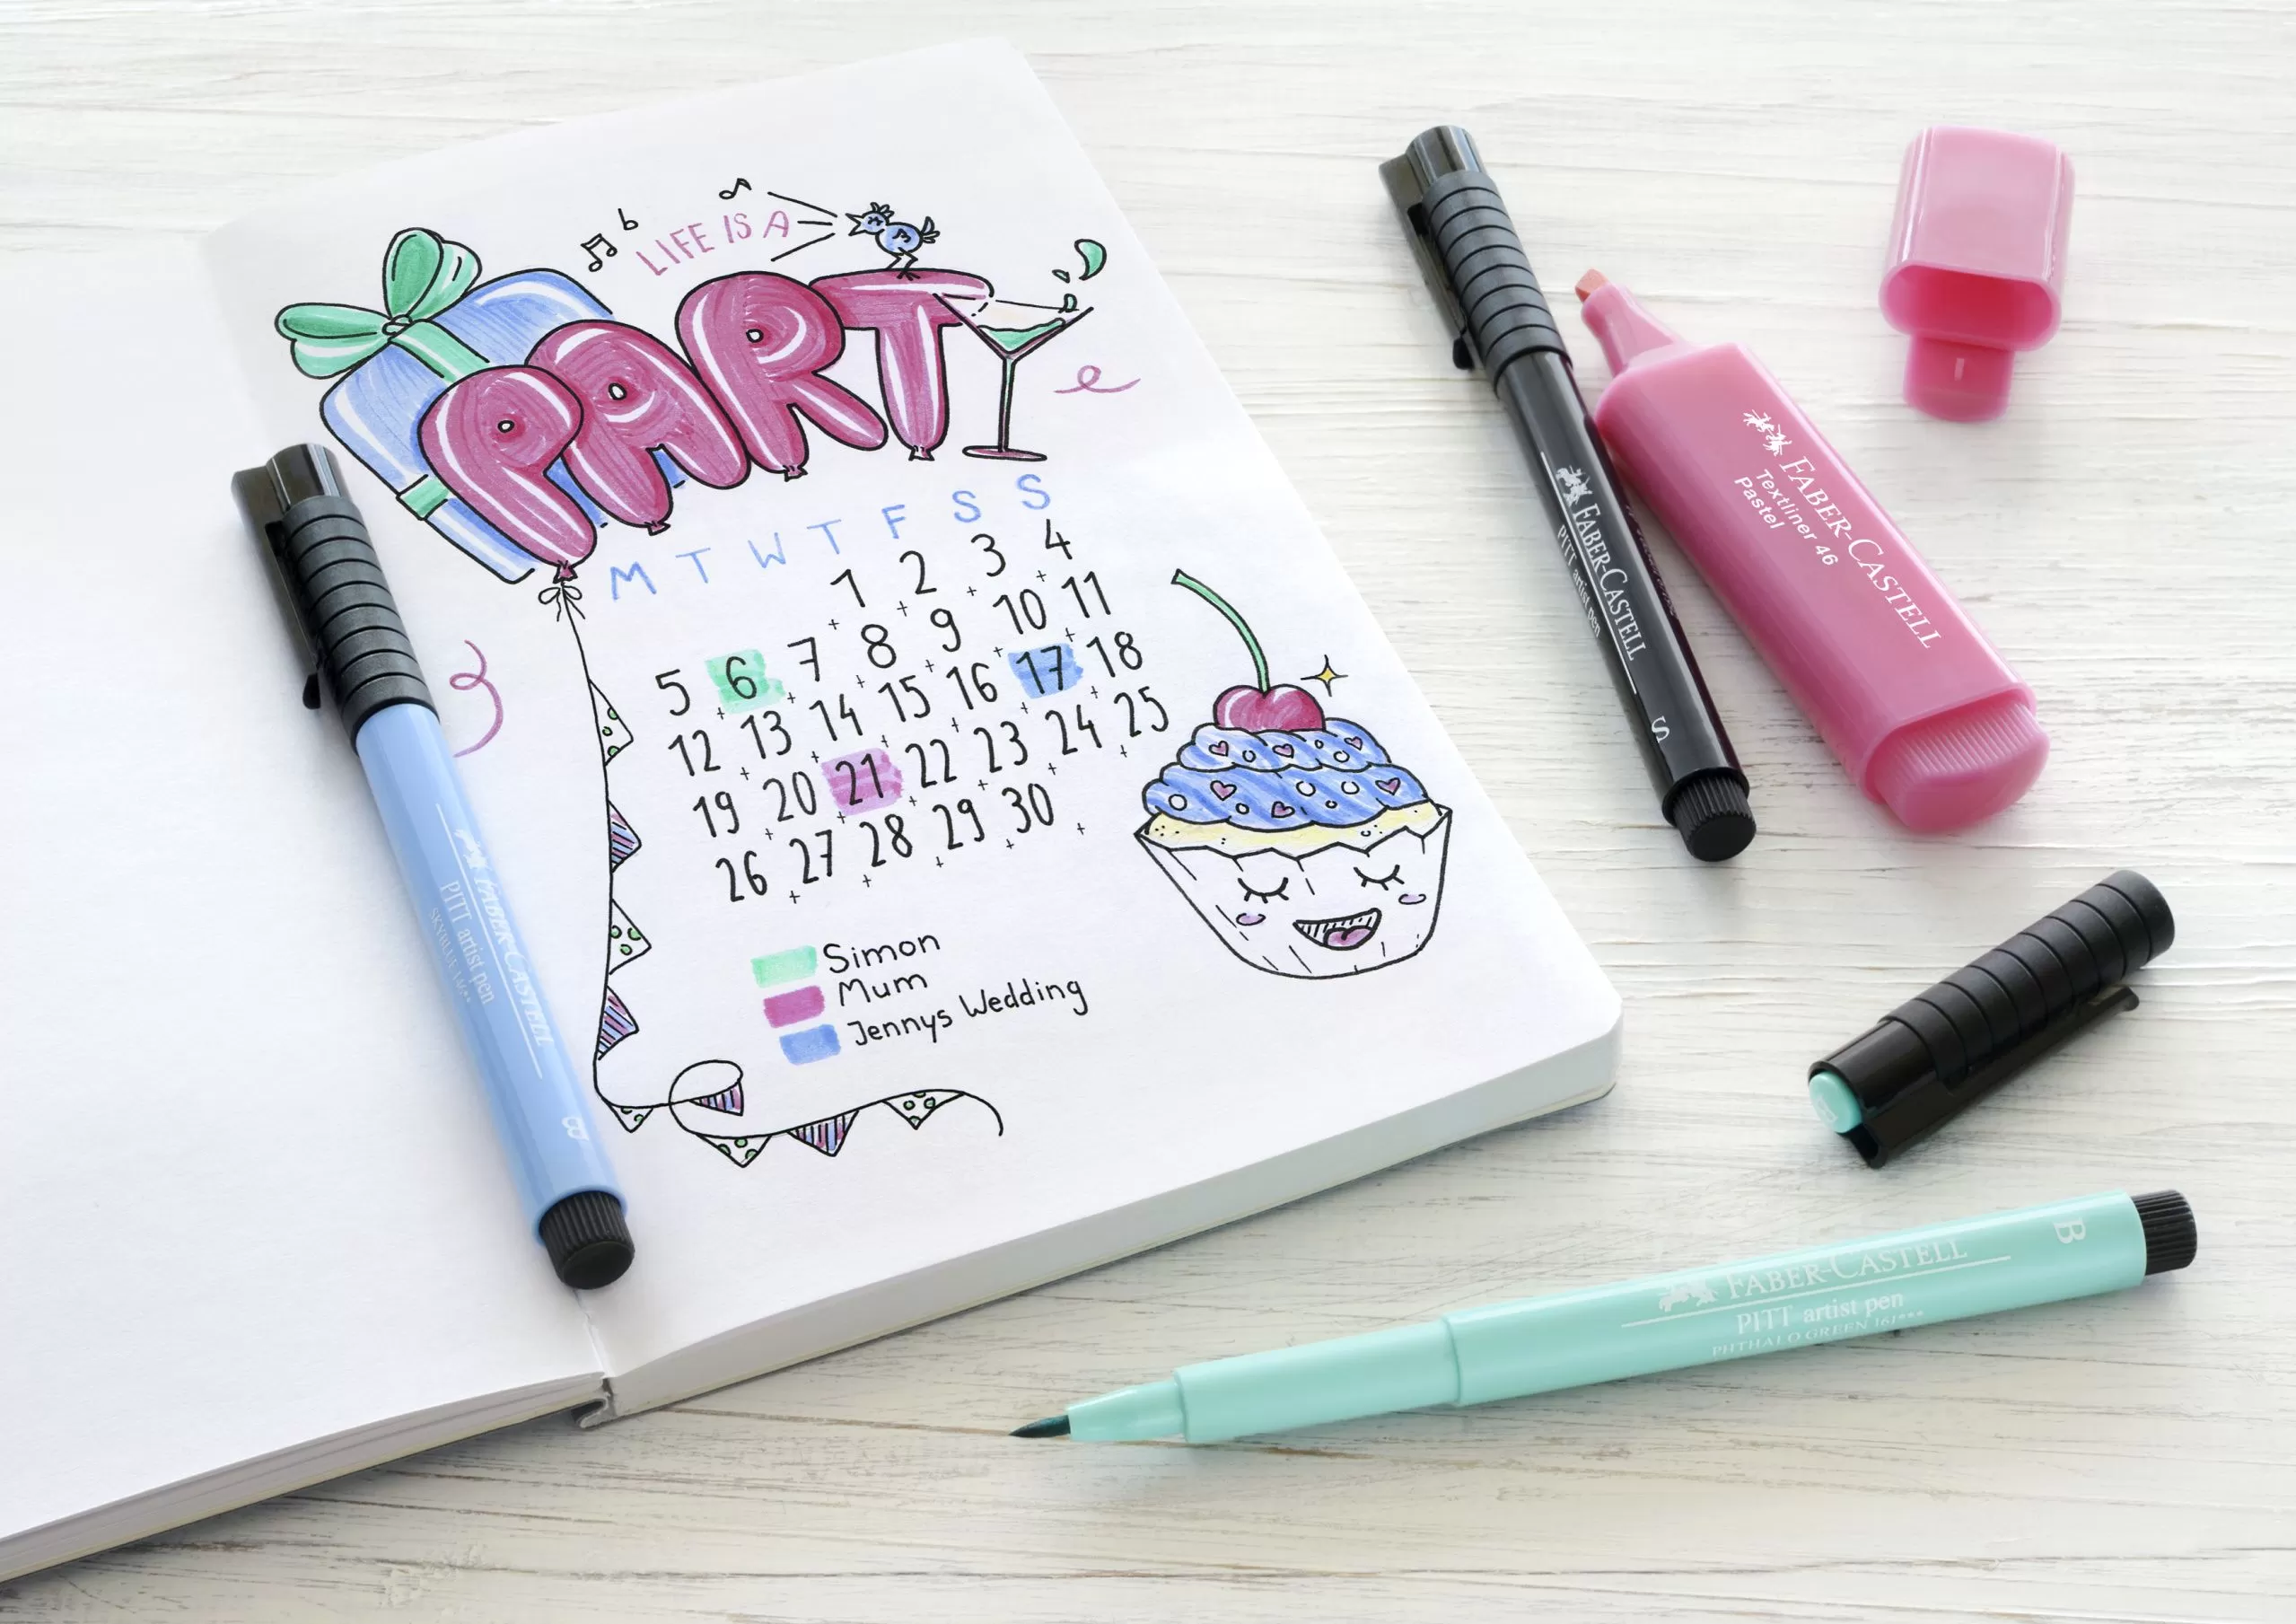 LIFE IS A
PART
M T W T F S S
1 2 3 4
5 6 7 8 9 10 11
12 13 14 15 16 17 18
19 20 21 22 23 24 25
26 27 28 29 30
Simon
Mum
Jennys Wedding
FABER-CASTELL
PITT artist pen
B
FABER-CASTELL
PITT artist pen
S
FABER-CASTELL
Textliner 46
Pastel
FABER-CASTELL
PITT artist pen
PHTHALO GREEN 161***
B